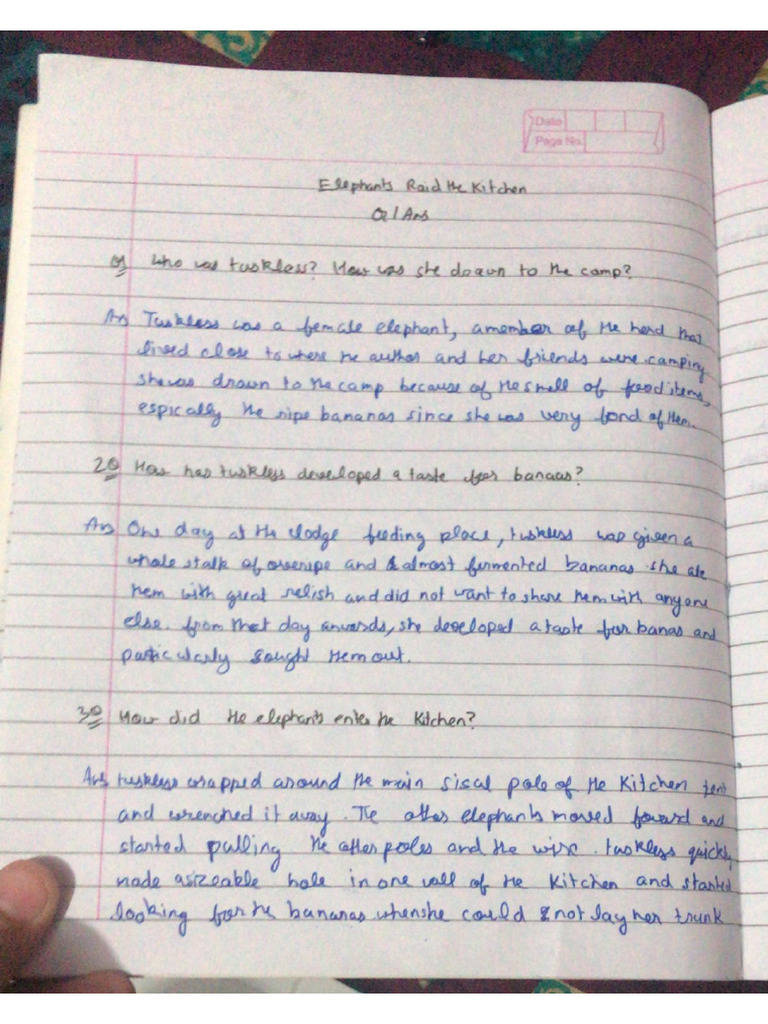 Date
Page No.
Elephants Raid the Kitchen
Q/Ans
Q1 Who was tuskless? How was she drawn to the camp?
An Tuskless was a female elephant, a member of the herd that
lived close to where the author and her friends were camping
she was drawn to the camp because of the smell of food items,
espically the ripe bananas since she was very fond of them.
2Q How has tuskless developed a taste for banaas?
An One day at the lodge feeding place, tuskless was given a
whole stalk of overripe and almost fermented bananas. she ate
them with great relish and did not want to share them with anyone
else. from that day onwards, she developed a taste for banas and
particularly sought them out.
3Q How did the elephants enter the Kitchen?
Ans tuskless wrapped around the main sisal pole of the Kitchen tent
and wrenched it away. The other elephants moved forward and
started pulling the other poles and the wire. tuskless quickly
made a sizeable hole in one wall of the Kitchen and started
looking for the bananas when she could not lay her trunk